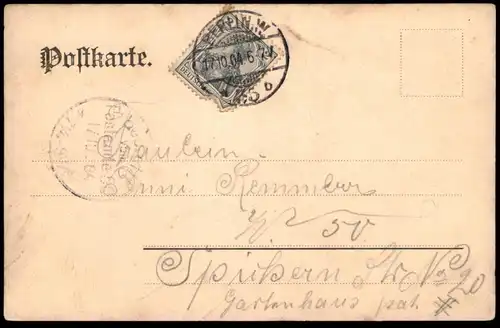 Postkarte.
BERLIN.W
17.10.04.6-7N
Fräulein
Anni Remmler
W 50
Spichern Str. No 20
Gartenhaus part